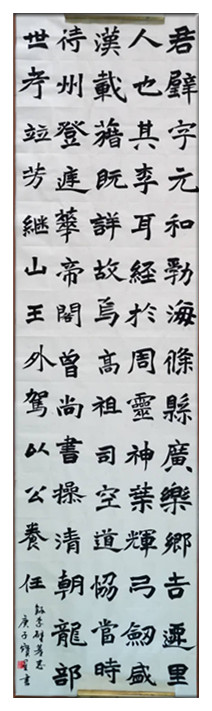 君璧字元和勃海條縣廣樂鄉吉遷里
人也其李耳經於周靈神葉輝弓劔盛
漢載藉既詳故焉高祖司空道協當時
待州登華帝閣曾尚書操清朝龍部
世考竝芳継山王外駕以公養任
録李璧墓志
庚子書